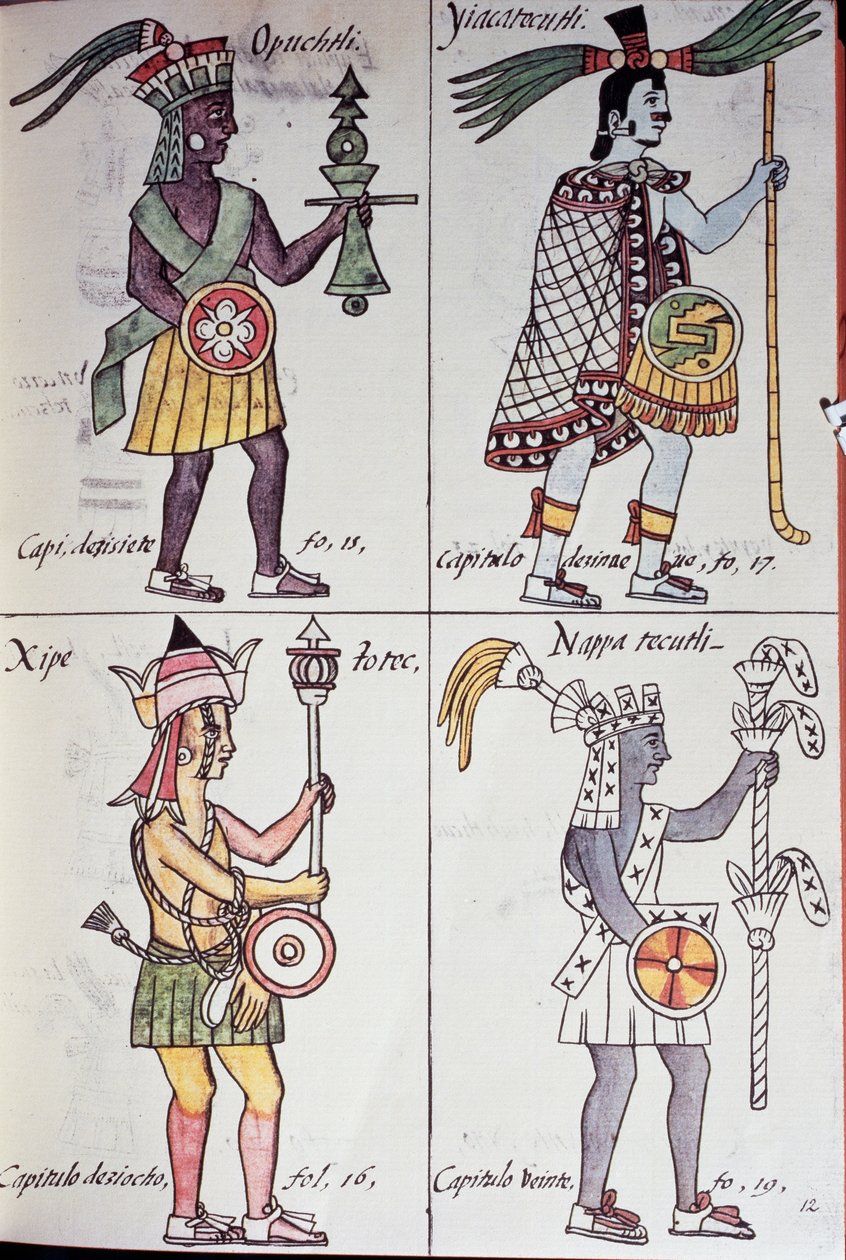 Opuchtli.
Capi, dezisiete fo, 15,
Yiacatecutli.
capitulo dezinue ue, fo, 17.
Xipe totec,
Capitulo deziocho, fol, 16,
Nappa tecutli_
Capitulo Veinte, fo, 19,
12